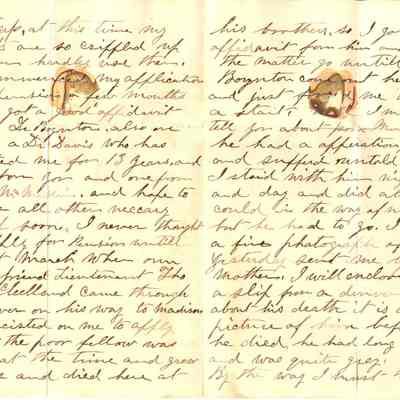 at this time my
's are so criffled up
hardly use them.
commenced my application
Pension a few months
got a good affidavit
Dr Boynton. also on
a Dr Davis who has
ted me for 13 years, and
from you and one from
and hope to
all other neccary
soon, I never thought
for Pension untill
March when our
friend Lieutenant Tho
Clelland came through
on his way to Madison
insisted on me to apply
the poor fellow was
at the time and grew
e and died here at
his brothers, so I go
affidavit from him an
the matter go untill
Boynton come out he
and just for me
a start, I
tell you about
he had a
and suffered untold
I staid with him ni
and day and did al
could in the way of n
but he had to go. I
a fine photograph of
yesterday sent me
Mother. I will enclose
a slip from a
about his death it is a
picture of him bef
he died he had long
and was quite grey.
By the way I must